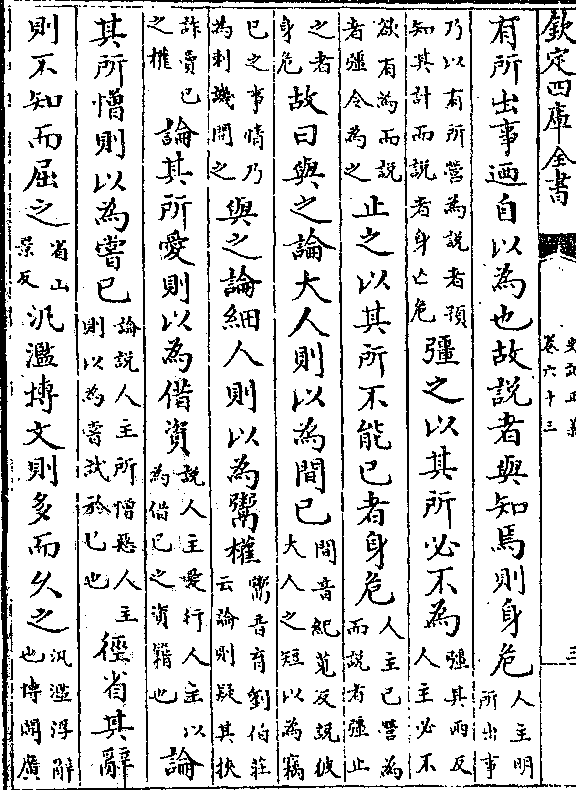 欽定四庫全書
史記正義
卷六十三
有所出事迺自以為也故說者與知焉則身危人主明所出事
乃以有所營為說者預知其計而說者身亡危彊之以其所必不為彊其兩反人主必不
欲有為而說者彊令為之止之以其所不能已者身危人主已營為而說者彊止
之者身危故曰與之論大人則以為間已間音紀莧反說彼大人之短以為竊
已之事情乃為刺譏間之與之論細人則以為鬻權鬻音育劉伯莊云論則疑其挾
詐賣已之權論其所愛則以為借資說人主愛行人主以為借已之資籍也論
其所憎則以為嘗已論說人主所憎惡人主則以為嘗試於已也徑省其辭
則不知而屈之省山景反汎濫博文則多而久之汎濫浮辭也博聞廣